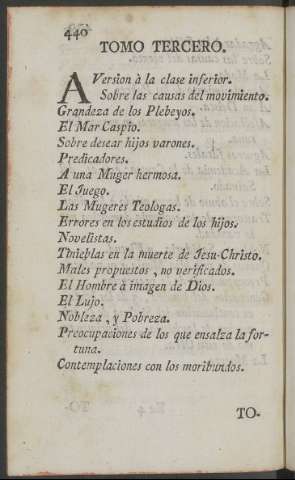 440
TOMO TERCERO.
AVersion à la clase inferior.
Sobre las causas del movimiento.
Grandeza de los Plebeyos.
El Mar Caspio.
Sobre desear hijos varones.
Predicadores.
A una Muger hermosa.
El Juego.
Las Mugeres Teologas.
Errores en los estudios de los hijos.
Novelistas.
Tinieblas en la muerte de Jesu-Christo.
Males propuestos, no verificados.
El Hombre à imagen de Dios.
El Lujo.
Nobleza, y Pobreza.
Preocupaciones de los que ensalza la for-
tuna.
Contemplaciones con los moribundos.
TO-